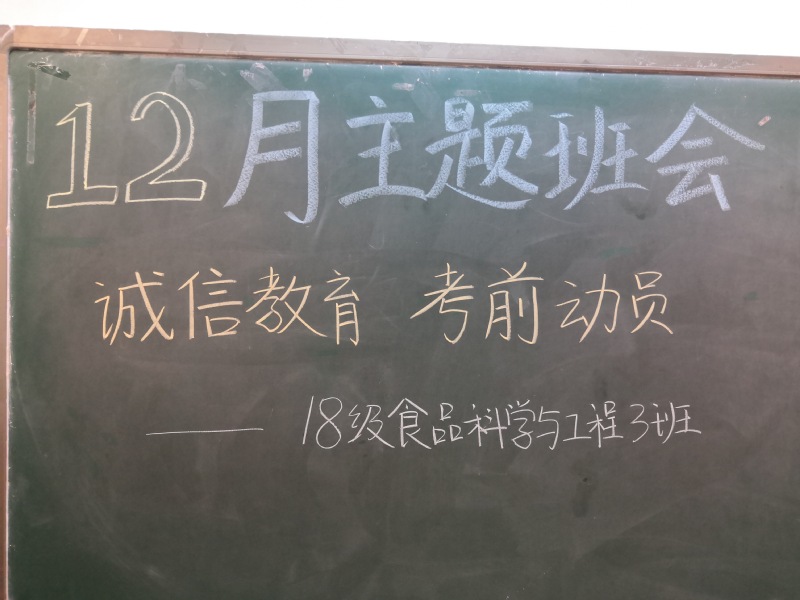 12月主题班会
诚信教育 考前动员
—— 18级食品科学与工程3班